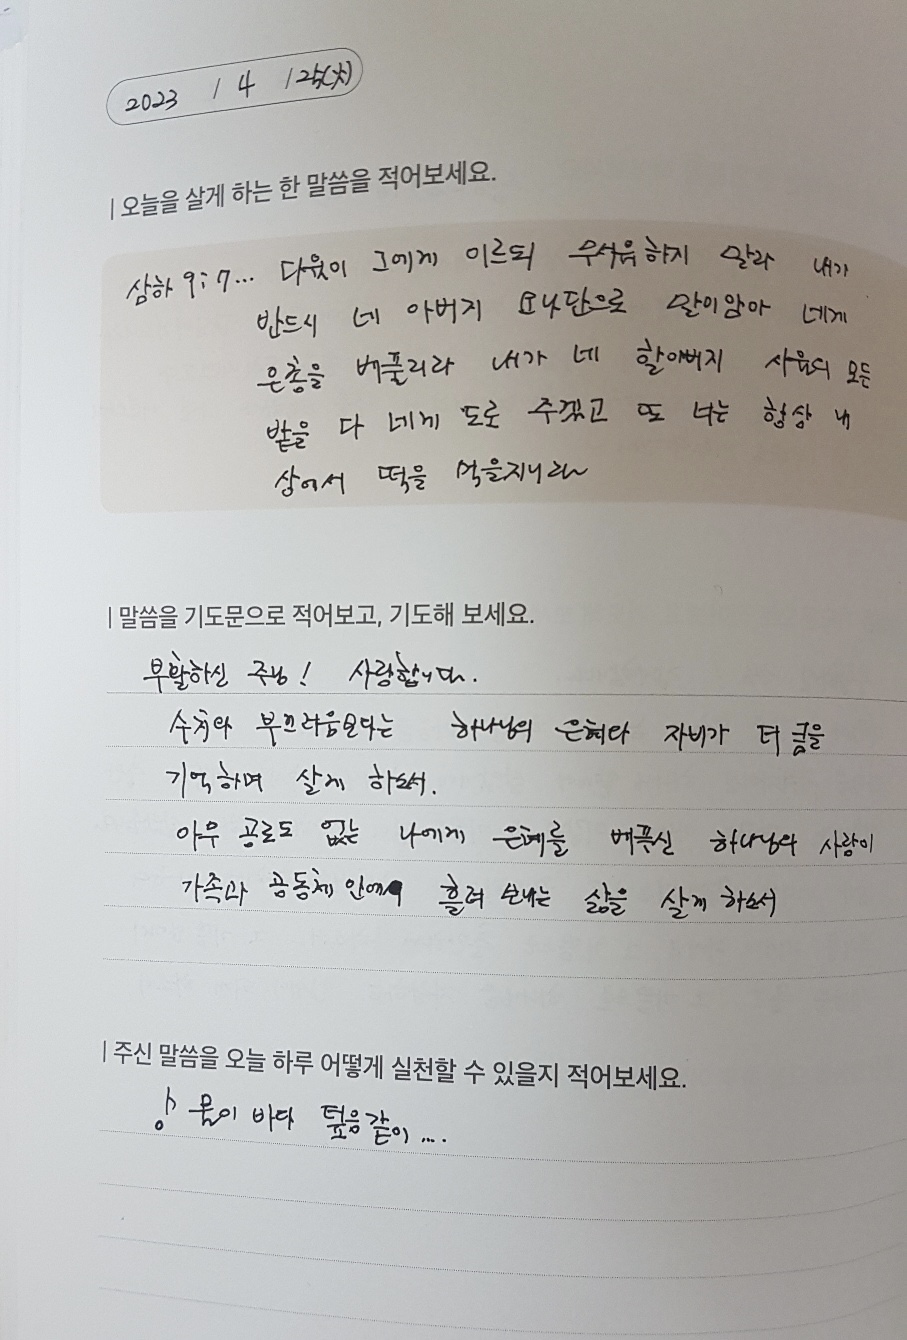 2023 / 4 / 25(火)
| 오늘을 살게 하는 한 말씀을 적어보세요.
삼하 9:7... 다윗이 그에게 이르되 무서워하지 말라 내가
반드시 네 아버지 요나단으로 말미암아 네게
은총을 베풀리라 내가 네 할아버지 사울의 모든
밭을 다 네게 도로 주겠고 또 너는 항상 내
상에서 떡을 먹을지니라
| 말씀을 기도문으로 적어보고, 기도해 보세요.
부활하신 주님! 사랑합니다.
수치와 부끄러움보다는 하나님의 은혜와 자비가 더 큼을
기억하며 살게 하소서.
아무 공로도 없는 나에게 은혜를 베푸신 하나님의 사랑이
가족과 공동체 안에서 흘려 보내는 삶을 살게 하소서
| 주신 말씀을 오늘 하루 어떻게 실천할 수 있을지 적어보세요.
♪ 물이 바다 덮음같이....